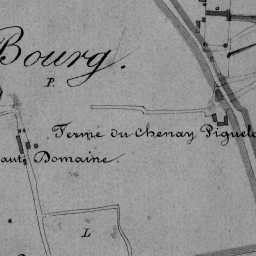 Bourg.
P.
Ferme du Chenay Piguel
haut Domaine.
L